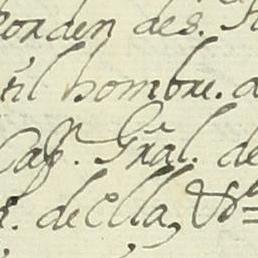 orden de S.
til hombre. d
Cap.ⁿ Grāl. de
de ella, &ª =